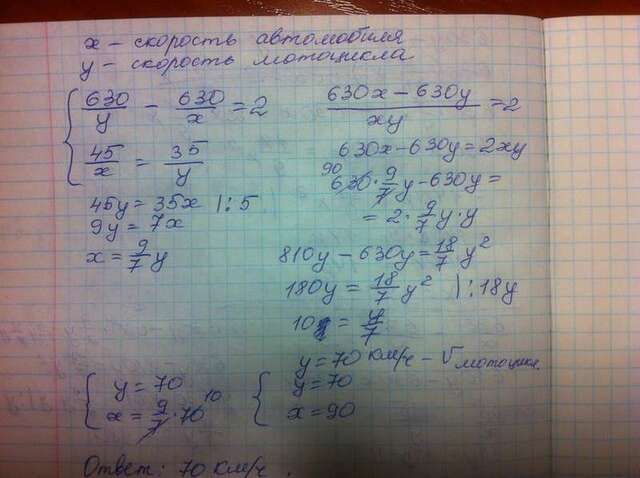 x – скорость автомобиля
y – скорость мотоцикла
{ 630/y – 630/x = 2
45/x = 35/y
45y = 35x |: 5
9y = 7x
x = 9/7 y
(630x – 630y)/xy = 2
630x – 630y = 2xy
90
630 · 9/7 y – 630y =
= 2 · 9/7 y · y
810y – 630y = 18/7 y²
180y = 18/7 y² |: 18y
10 = y/7
y = 70 км/ч – V мотоцикл.
{ y = 70
x = 9/7 · 70 10
{ y = 70
x = 90
Ответ: 70 км/ч.